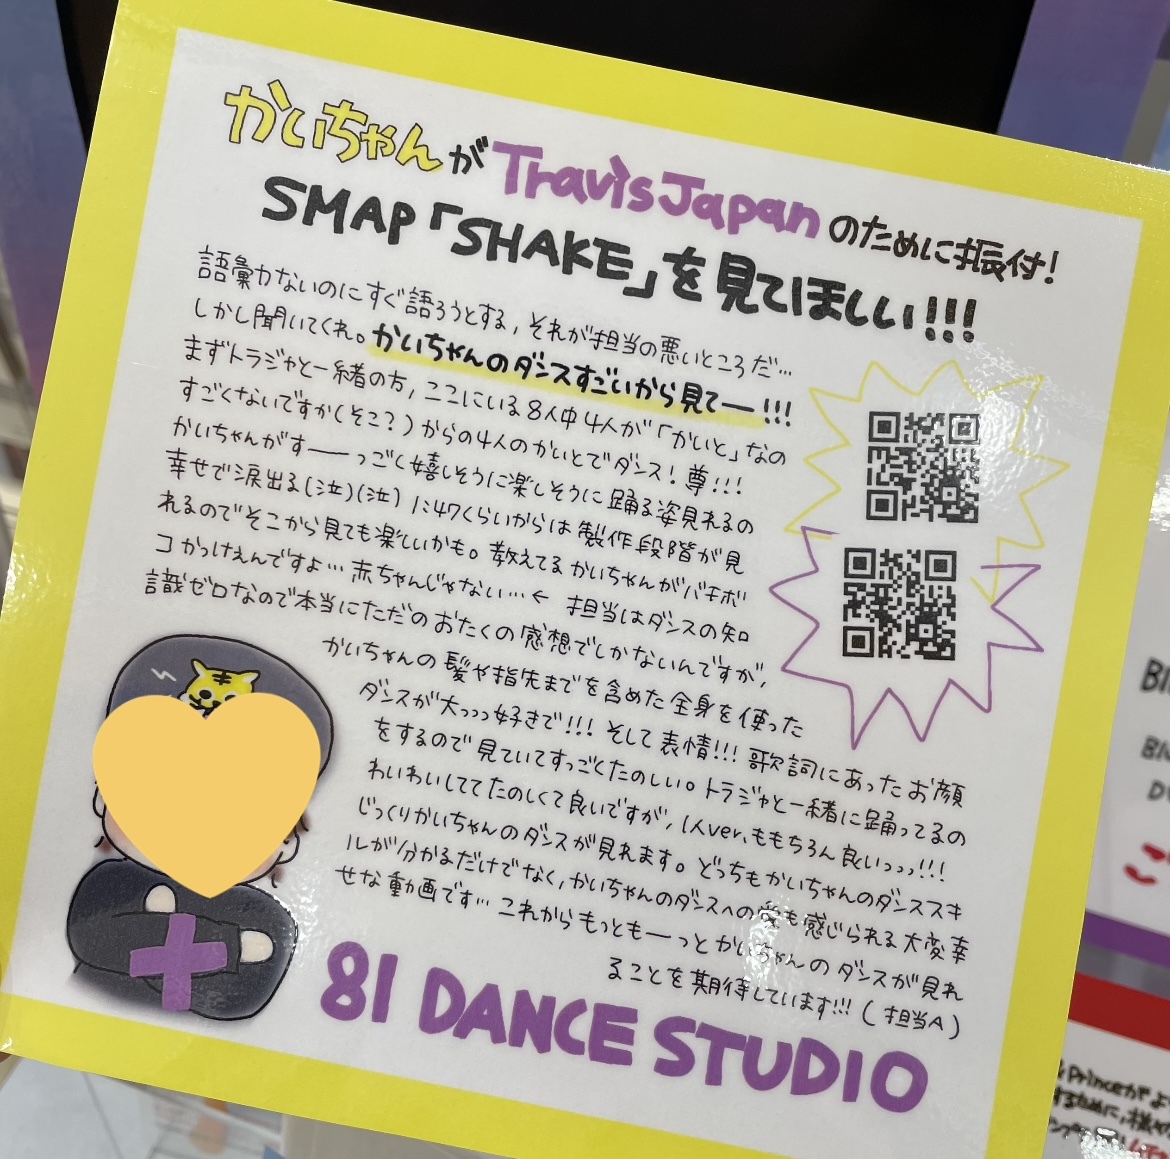 かいちゃんがTravis Japanのために振付!
SMAP「SHAKE」を見てほしい!!!
語彙力ないのにすぐ語ろうとする,それが担当の悪いところだ…
しかし聞いてくれ。かいちゃんのダンスすごいから見てー!!!
まずトラジャと一緒の方,ここにいる8人中4人が「かいと」なの
すごくないですか(そこ?)からの4人のかいとでダンス!尊!!!
かいちゃんがすーーっごく嬉しそうに楽しそうに踊る姿見れるの
幸せで涙出る(泣)(泣) 1:47くらいからは製作段階が見
れるのでそこから見ても楽しいかも。教えてるかいちゃんがバキボ
コかっけえんですよ…赤ちゃんじゃない…← 担当はダンスの知
識ゼロなので本当にただのおたくの感想でしかないんですが,
かいちゃんの髪や指先までを含めた全身を使った
ダンスが大っっっ好きで!!!そして表情!!!歌詞にあったお顔
をするので見ていてすっごくたのしい。トラジャと一緒に踊ってるの
わいわいしててたのしくて良いですが,1人ver.ももちろん良いっっっ!!!
じっくりかいちゃんのダンスが見れます。どっちもかいちゃんのダンススキ
ルが分かるだけでなく,かいちゃんのダンスへの愛も感じられる大変幸
せな動画です…これからもっともーっとかいちゃんのダンスが見れ
ることを期待しています!!!(担当A)
81 DANCE STUDIO